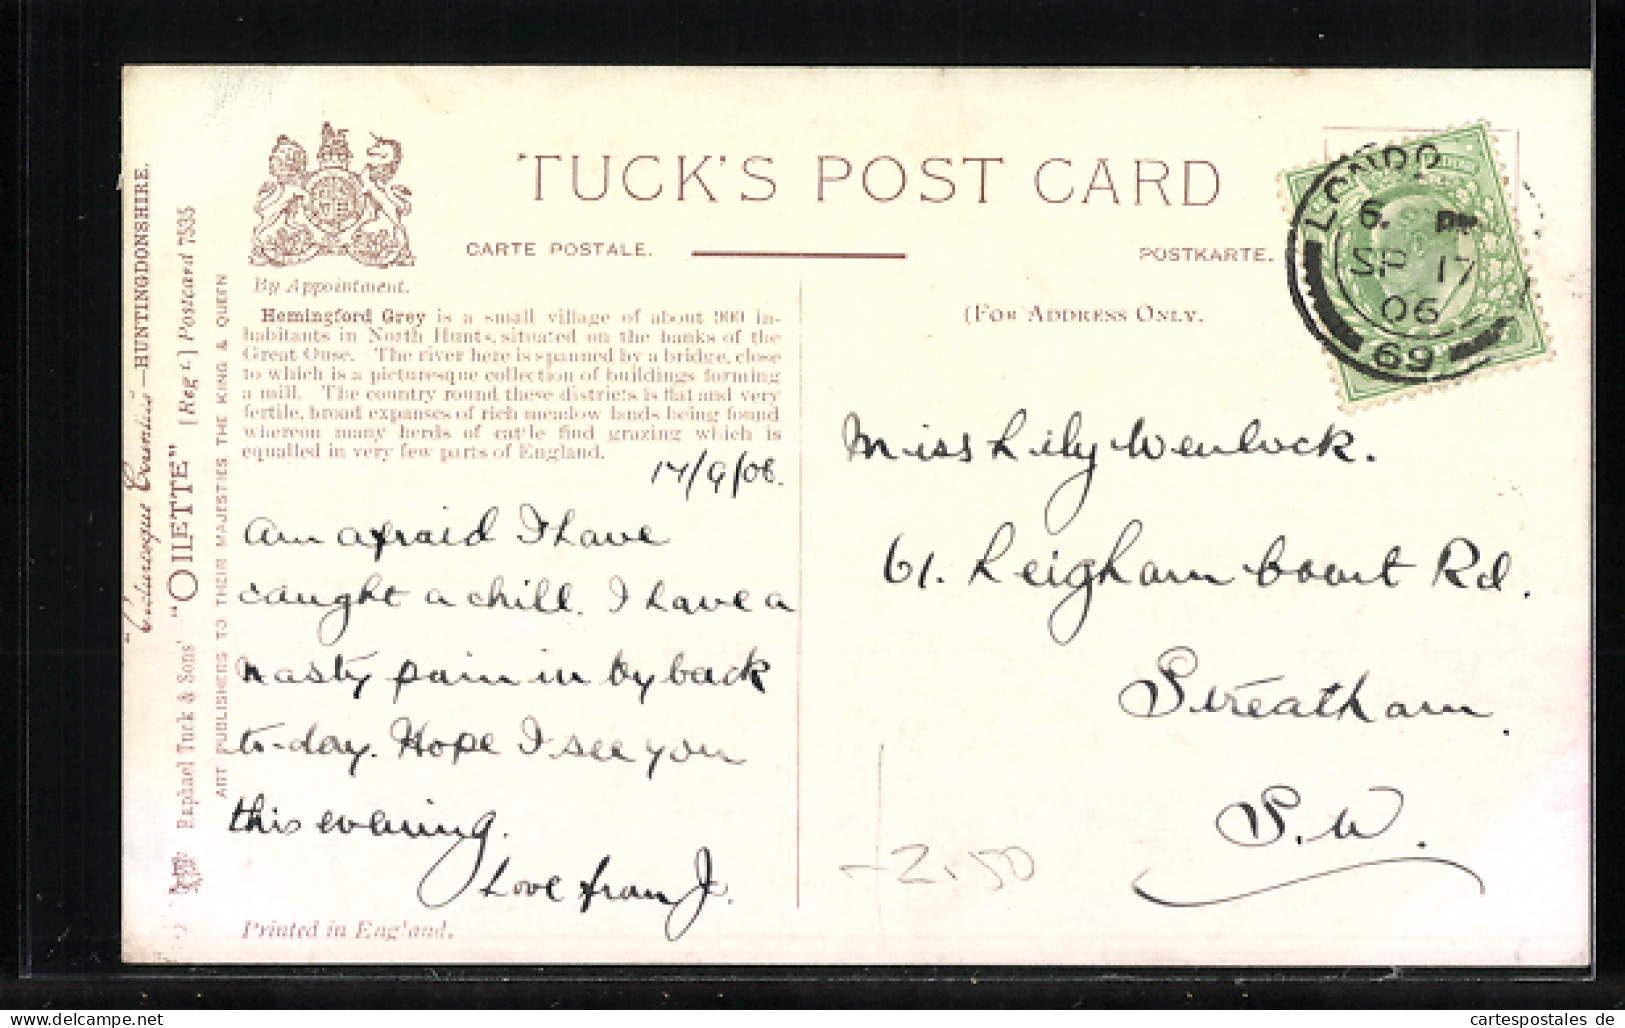 TUCK'S POST CARD
CARTE POSTALE.
POSTKARTE.
By Appointment.
(FOR ADDRESS ONLY.
Hemingford Grey is a small village of about 900 in-
habitants in North Hunts, situated on the banks of the
Great Ouse. The river here is spanned by a bridge, close
to which is a picturesque collection of buildings forming
a mill. The country round these districts is flat and very
fertile, broad expanses of rich meadow lands being found
whereon many herds of cattle find grazing which is
equalled in very few parts of England.
17/9/06.
am afraid I have
caught a chill. I have a
nasty pain in by back
to-day. Hope I see you
this evening.
Love from J.
Printed in England.
"Picturesque Counties"—HUNTINGDONSHIRE.
Raphael Tuck & Sons' "OILETTE" [Regd.] Postcard 7535
ART PUBLISHERS TO THEIR MAJESTIES THE KING & QUEEN
LONDO
6. PM
SP 17
06
69
Miss Lily Wenlock.
61. Leigham Court Rd.
Streatham.
S.W.
2,50
cartespostales de